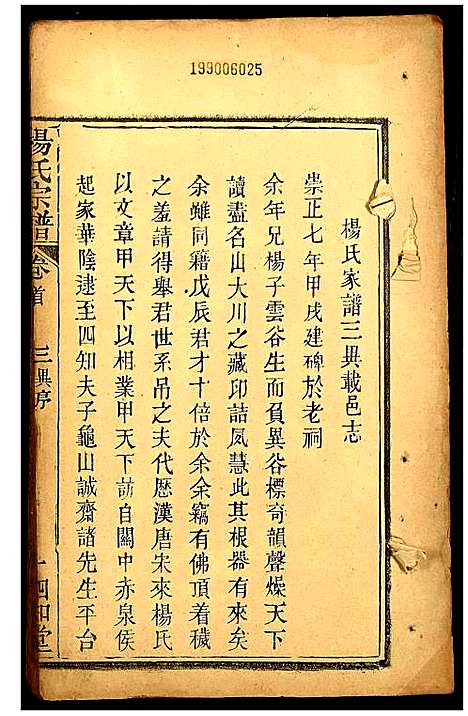 199006025
楊氏家譜三異載邑志
崇正七年甲戌建碑於老祠
余年兄楊子雲谷生而負異谷標奇韻聲燥天下
讀盡名山大川之藏印詰夙慧此其根器有來矣
余雖同籍戊辰君才十倍於余余竊有佛頂着穢
之羞請得舉君世系吊之夫代歷漢唐宋來楊氏
以文章甲天下以相業甲天下訪自關中赤泉侯
起家華陰逮至四知夫子龜山誠齋諸先生平台
楊氏宗譜 卷首 三異序 四知堂